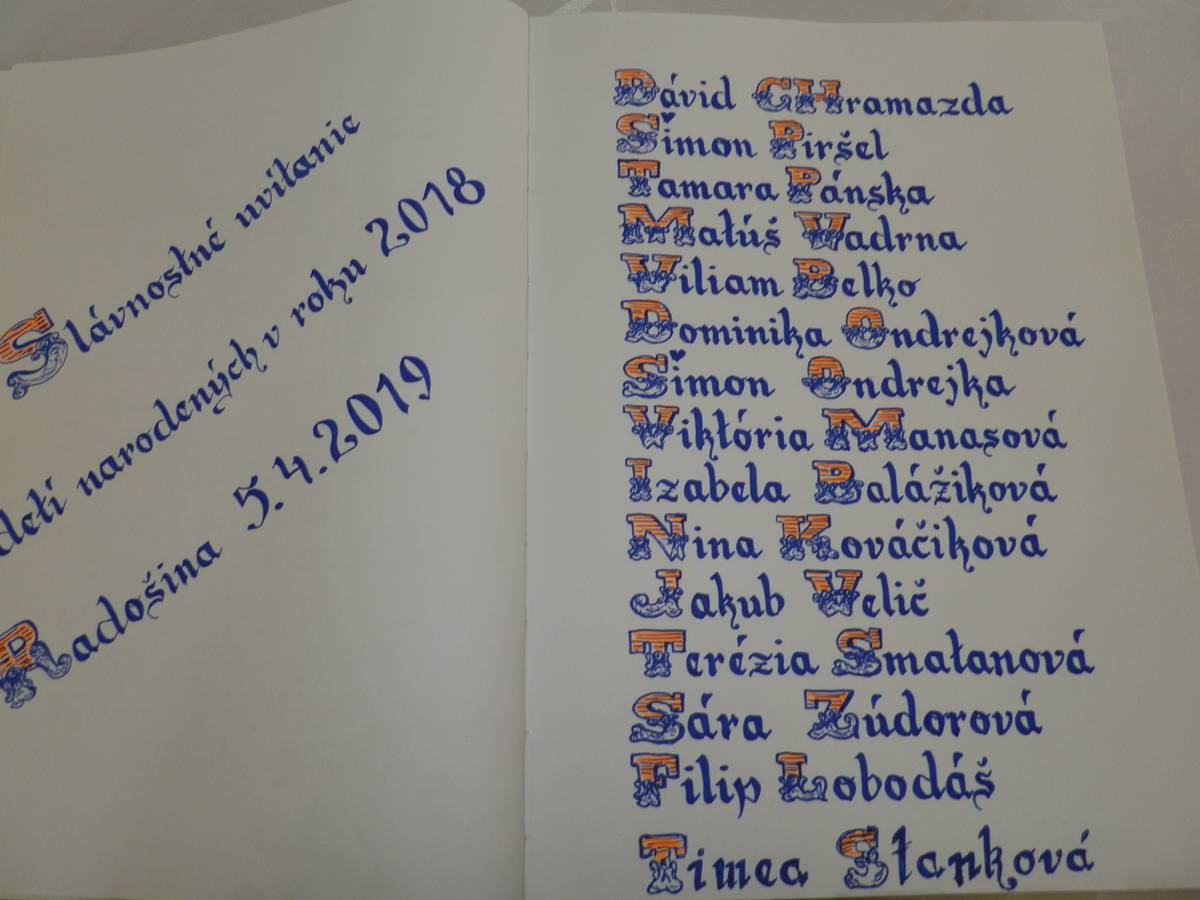 Slávnostné uvítanie
detí narodených v roku 2018
Radošina 5.4.2019
Dávid CHramazda
Šimon Piršel
Tamara Pánska
Matúš Vadrna
Viliam Belko
Dominika Ondrejková
Šimon Ondrejka
Viktória Manasová
Izabela Balážiková
Nina Kováčiková
Jakub Velič
Terézia Smatanová
Sára Zúdorová
Filip Lobodáš
Timea Stanková